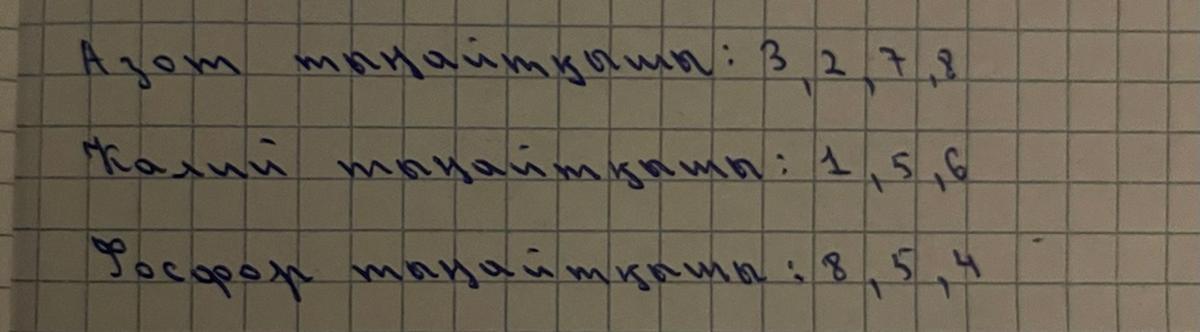 Азот тыңайтқышы: 3, 2, 7, 8
Калий тыңайтқышы: 1, 5, 6
Фосфор тыңайтқышы: 8, 5, 4